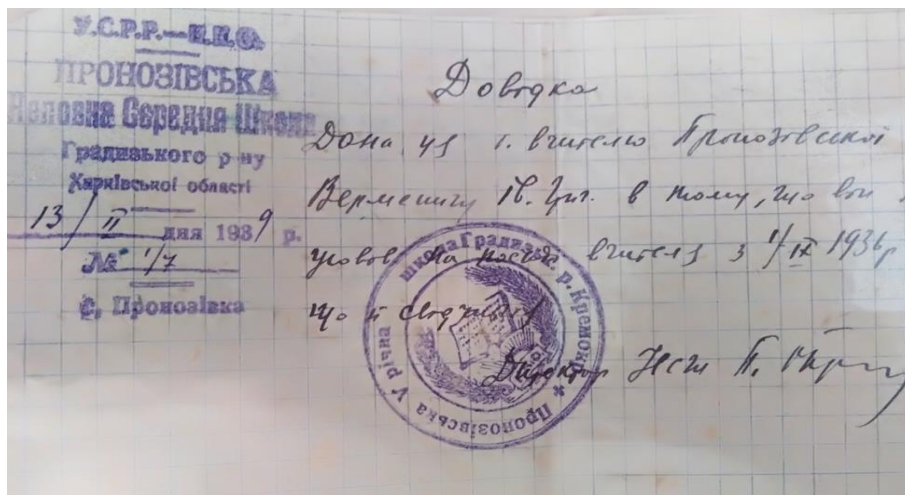 У.С.Р.Р.—Н.К.О.
ПРОНОЗІВСЬКА
Неповна Середня Школа
Градизького р-ну
Харківської області
13/II дня 1939 р.
№ 1/7
с. Пронозівка
Довідка
Дана ця вчителю Пронозовської
Верменичу Ів. Гиг. в тому, що він
на посаді вчителя з 1/ІХ 1936 р
що й стверджую
Директор НСШ П.
Пронозівська V річна школа Градизьк. р. Кремокр.